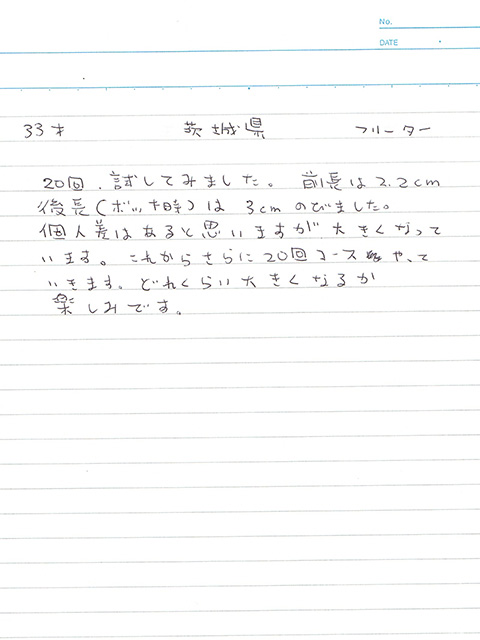 No.
DATE
33才 茨城県 フリーター
20回、試してみました。 前長は2.2cm
後長(ボッキ時)は 3cm のびました。
個人差はあると思いますが大きくなって
います。これからさらに20回コースをやって
いきます。どれくらい大きくなるか
楽しみです。